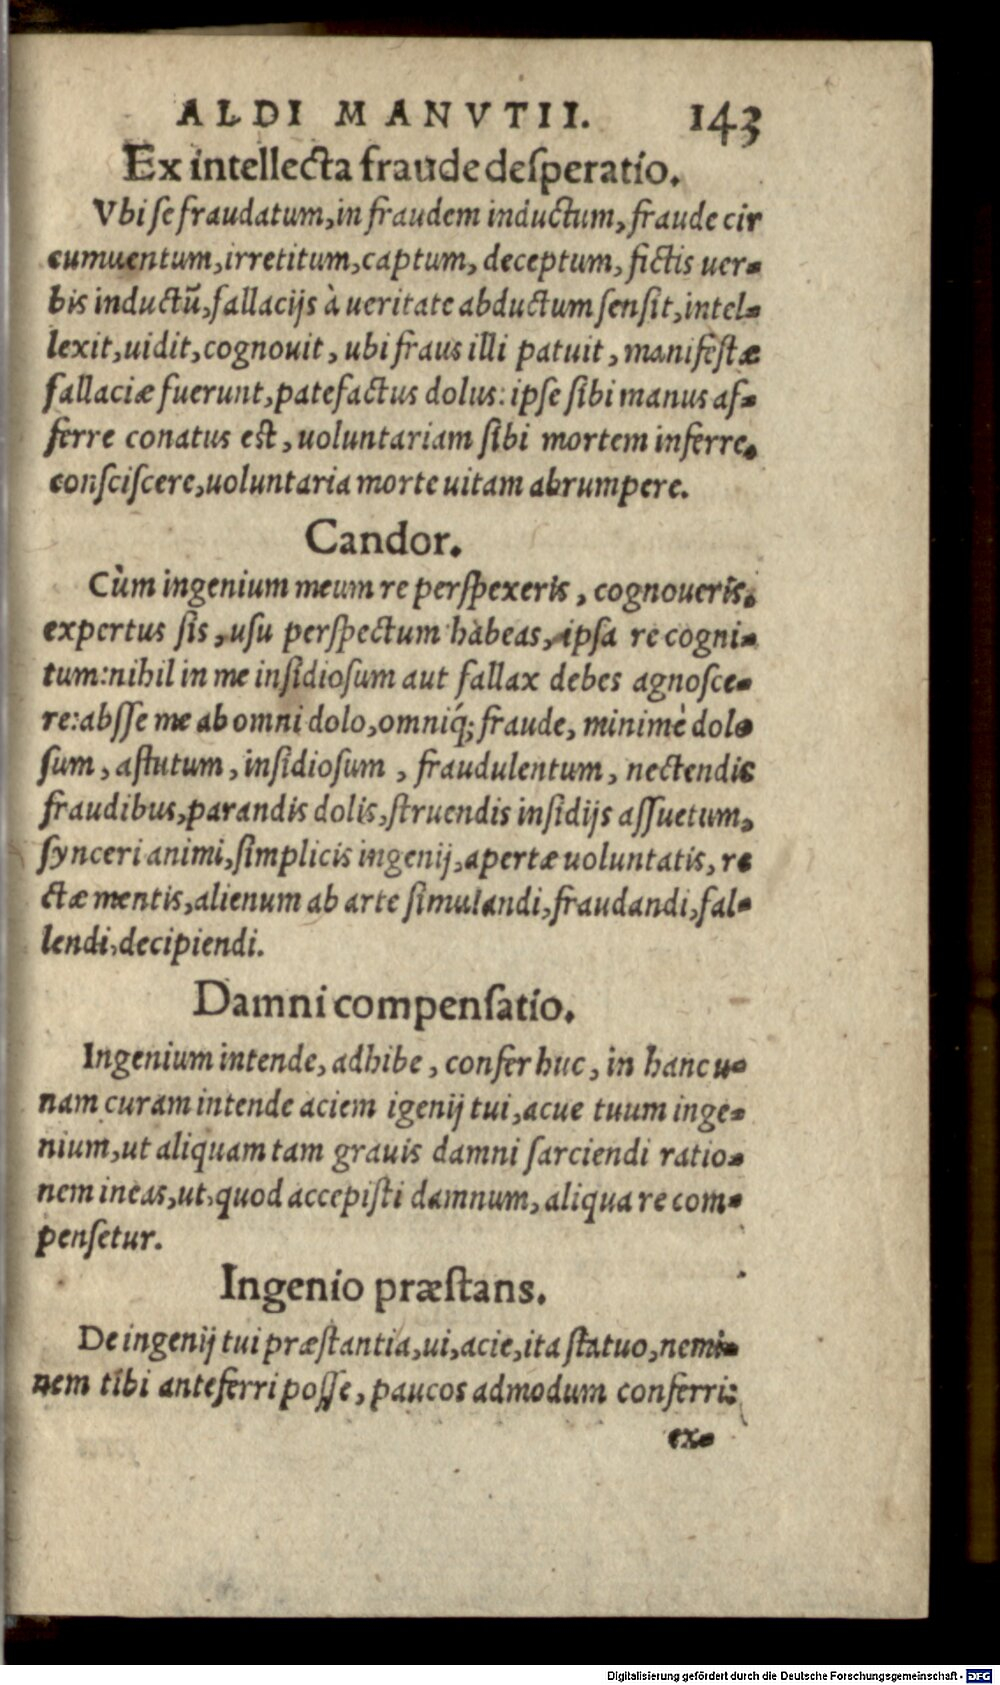 ALDI MANVTII. 143
Ex intellecta fraude deſperatio.
Vbi ſe fraudatum, in fraudem inductum, fraude cir
cumuentum, irretitum, captum, deceptum, fictis uer-
bis inductū, fallacijs à ueritate abductum ſenſit, intel-
lexit, uidit, cognouit, ubi fraus illi patuit, manifeſtæ
fallaciæ fuerunt, patefactus dolus: ipſe ſibi manus af-
ferre conatus eſt, uoluntariam ſibi mortem inferre,
conſciſcere, uoluntaria morte uitam abrumpere.
Candor.
Cùm ingenium meum re perſpexeris, cognoueris,
expertus ſis, uſu perſpectum habeas, ipſa re cogni-
tum: nihil in me inſidioſum aut fallax debes agnoſce-
re: abſſe me ab omni dolo, omniq́; fraude, minimè dolo
ſum, aſtutum, inſidioſum, fraudulentum, nectendis
fraudibus, parandis dolis, ſtruendis inſidijs aſſuetum,
ſynceri animi, ſimplicis ingenij, apertæ uoluntatis, re
ctæ mentis, alienum ab arte ſimulandi, fraudandi, fal-
lendi, decipiendi.
Damni compenſatio.
Ingenium intende, adhibe, confer huc, in hanc u-
nam curam intende aciem igenij tui, acue tuum inge-
nium, ut aliquam tam grauis damni ſarciendi ratio-
nem ineas, ut, quod accepiſti damnum, aliqua re com-
penſetur.
Ingenio præſtans.
De ingenij tui præſtantia, ui, acie, ita ſtatuo, nemi-
nem tibi anteferri poſſe, paucos admodum conferri:
ex-
Digitalisierung gefördert durch die Deutsche Forschungsgemeinschaft - DFG